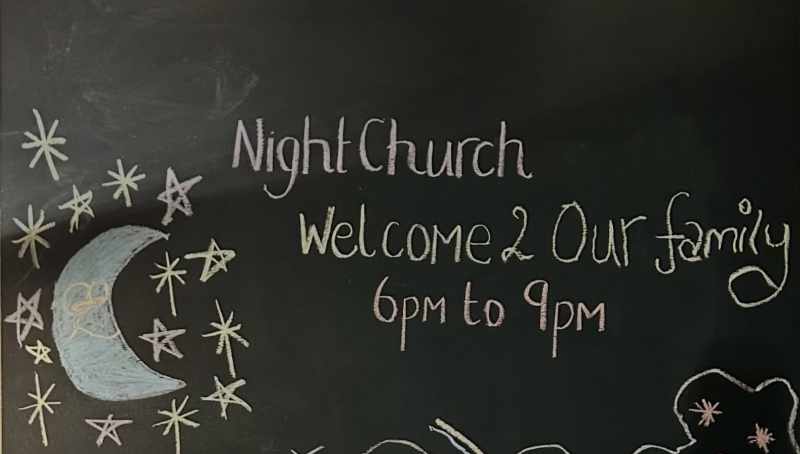 Night Church
Welcome 2 Our family
6pm to 9pm